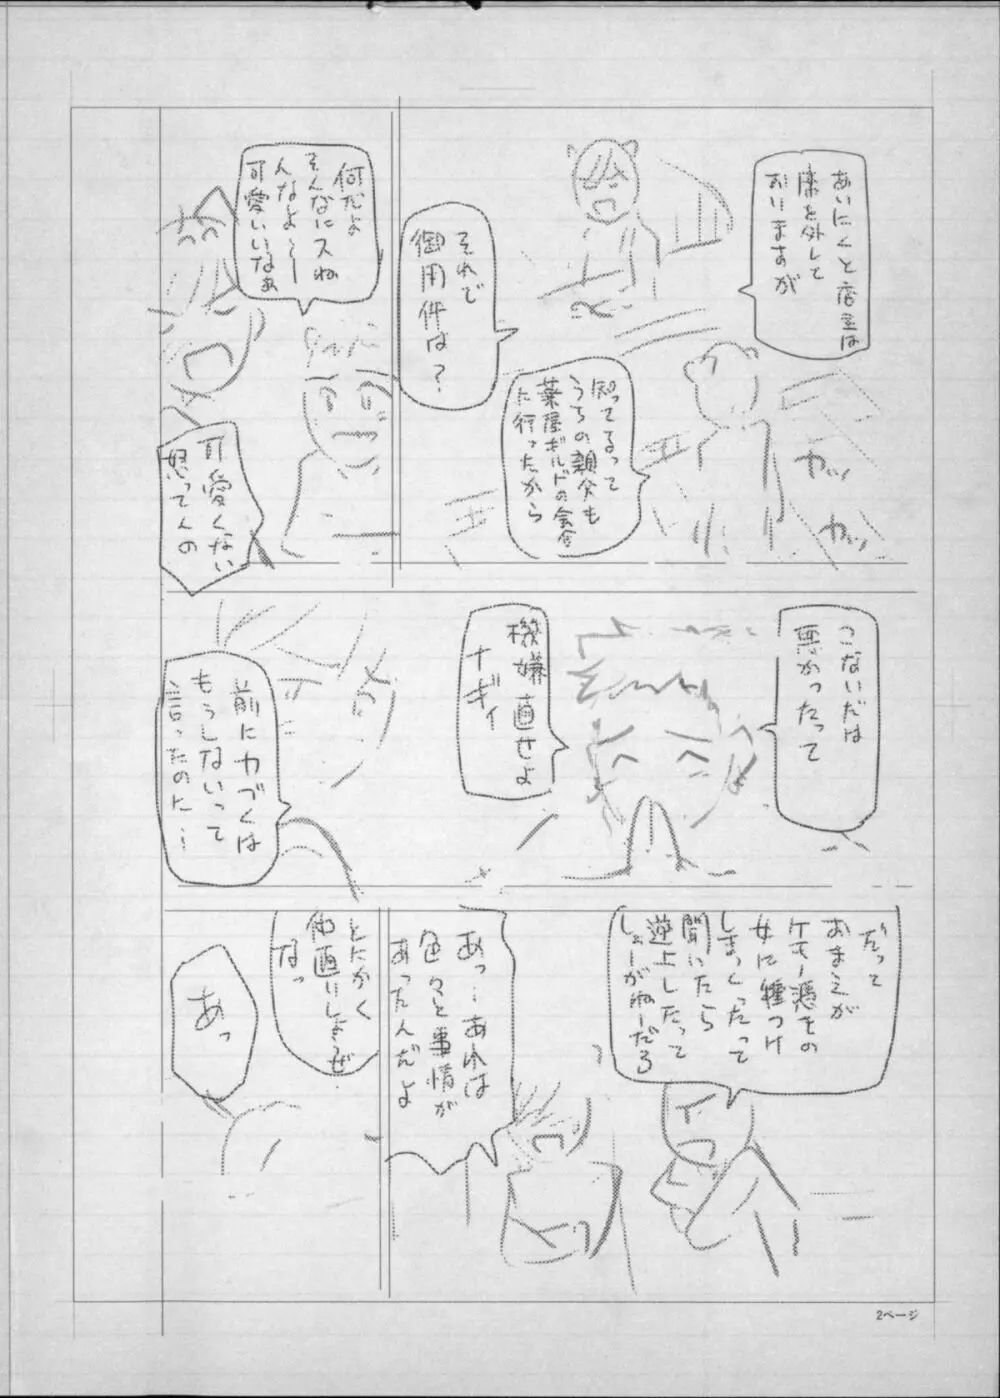 あいにくと店主は
席を外して
おりますが
それで
御用件は？
知ってるって
うちの親父も
薬屋ギルドの会合
に行ったから
カッ
カッ
何だよ
そんなにスね
んなよ〜
可愛いいなぁ
可愛くない
怒ってんの
こないだは
悪かったって
機嫌直せよ
ナギィ
前に力づくは
もうしないって
言ったのに…
だって
おまえが
ケモノ憑きの
女に種つけ
しまくったって
聞いたら
逆上したって
しょーがねーだろ
あっ…あれは
色々と事情が
あったんだよ
とにかく
仲直りしようぜ
なっ
あっ
2ページ